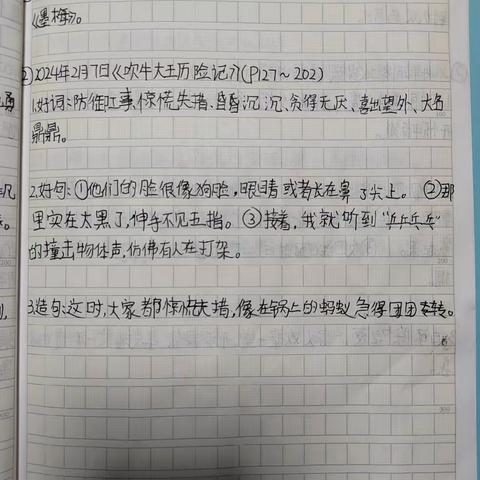 《墨梅》。
②2024年2月7日《吹牛大王历险记》(P127~202)
1.好词:防御工事、惊慌失措、昏昏沉沉、贪得无厌、喜出望外、大名
鼎鼎。
2.好句:①他们的脸很像狗脸,眼睛或者长在鼻子尖上。 ②那
里实在太黑了,伸手不见五指。③接着,我就听到“乒乒乓乓”
的撞击物体声,仿佛有人在打架。
3.造句:这时,大家都惊慌失措,像在锅上的蚂蚁急得团团转。